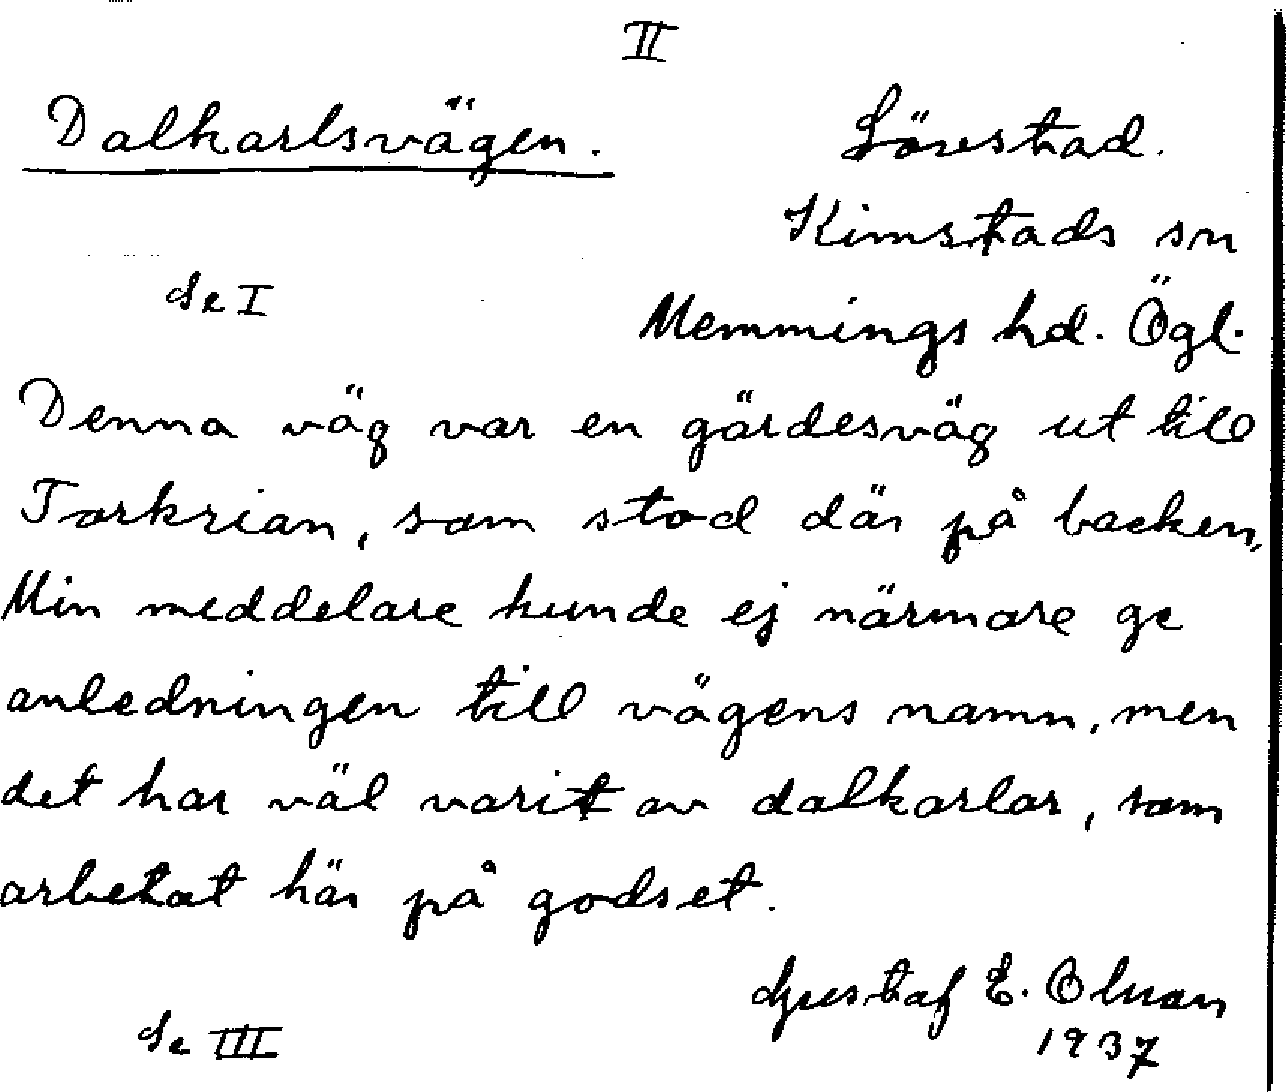 II
Dalkarlsvägen.
Lövestad.
Kimstads sn
Se I
Memmings hd. Ögl.
Denna väg var en gärdesväg ut till
Torkrian, som stod där på backen,
Min meddelare kunde ej närmare ge
anledningen till vägens namn, men
det har väl varit av dalkarlar, som
arbetat här på godset.
Gustaf E. Olsson
1937
Se III